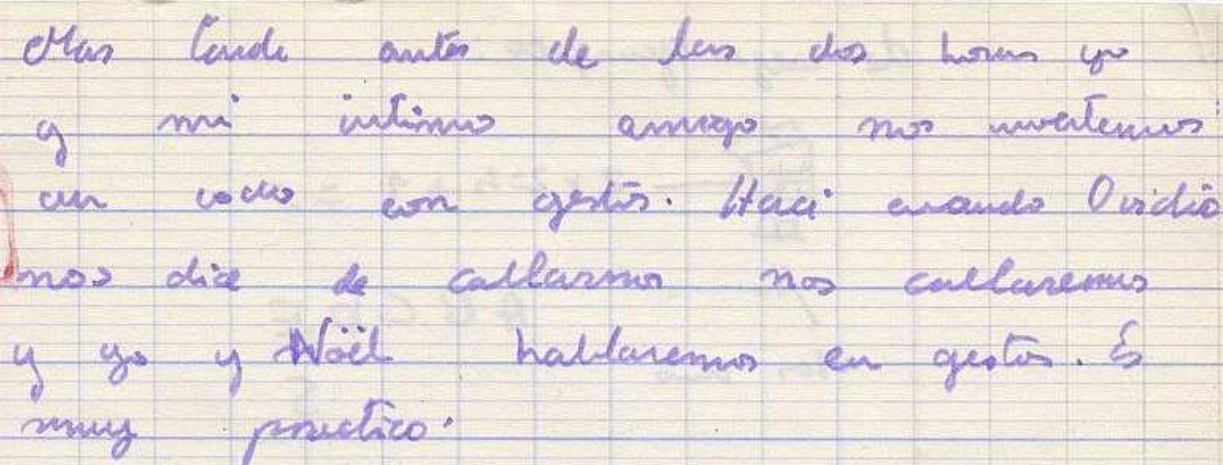 Mas tarde antes de las dos horas yo
y mi intimo amigo nos inventemos
un codio con gestos. Haci cuando Ovidio
nos dice de callarnos nos callaremos
y yo y Nöel hablaremos en gestos. Es
muy practico.